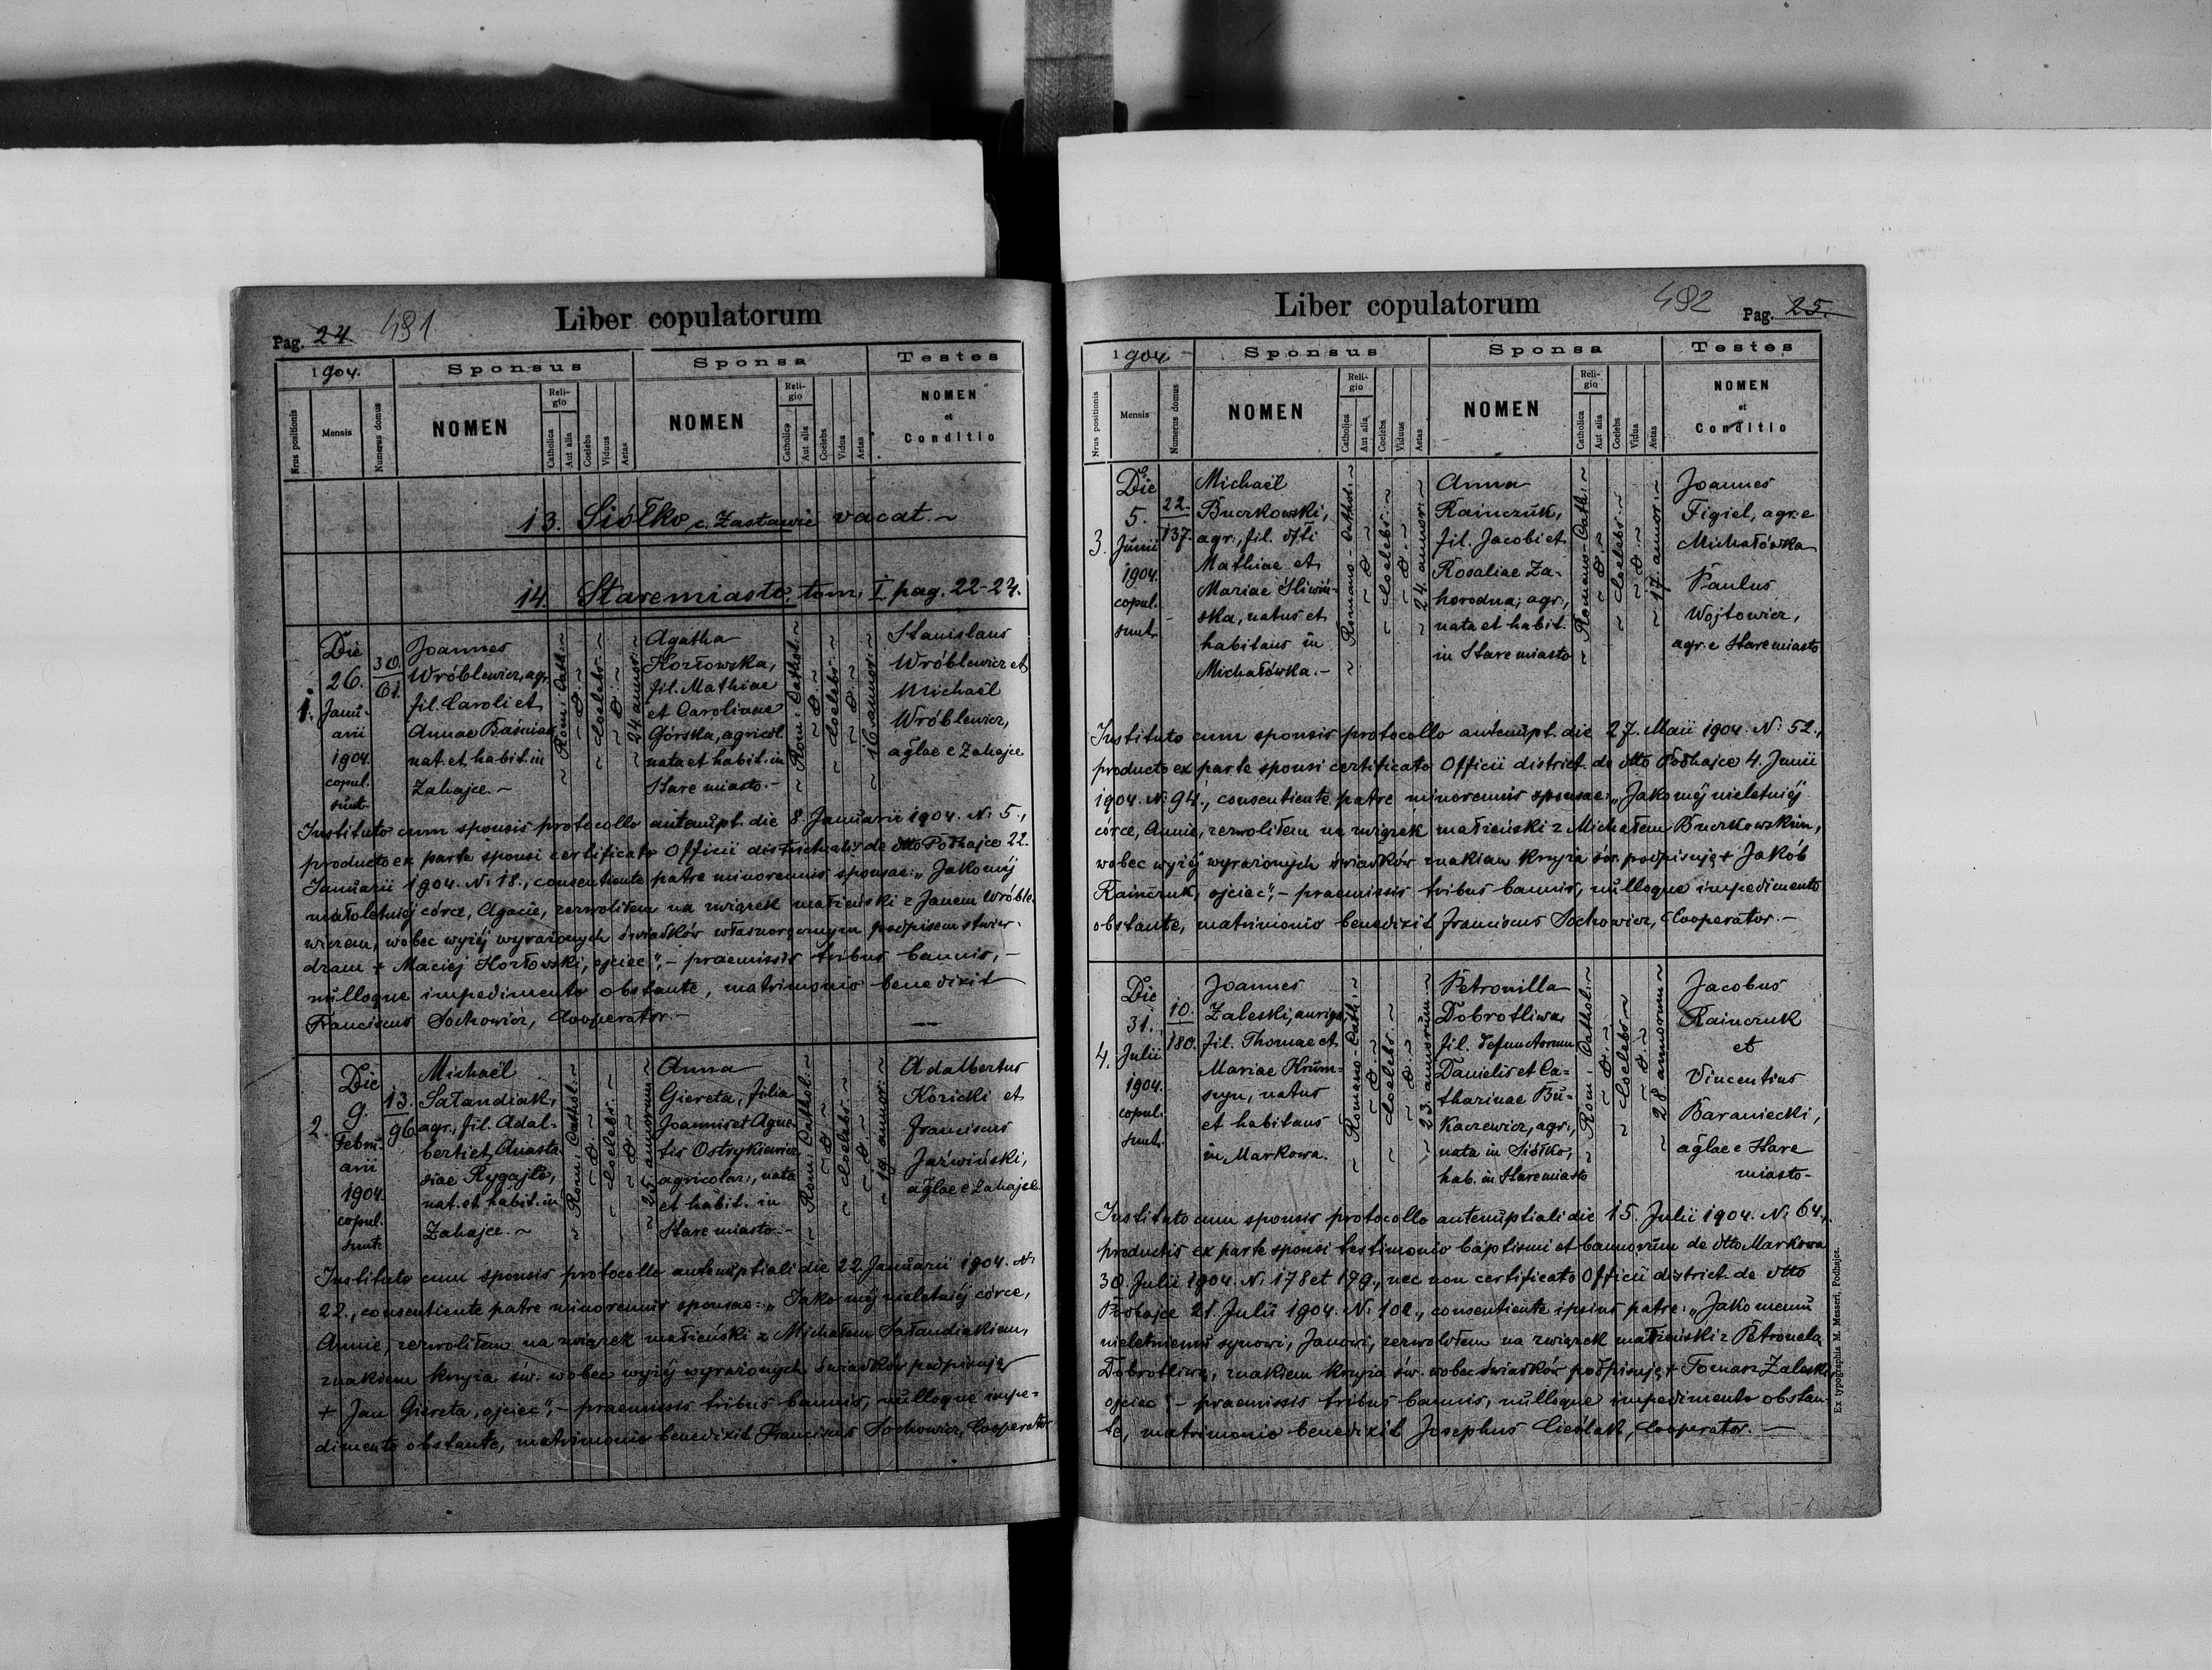 Liber copulatorum
Pag. 24 491
1904.
Sponsus
Sponsa
Testes
Nrus positionis
Mensis
Numerus domus
NOMEN
Religio
Catholica
Aut alia
Coelebs
Viduus
Aetas
NOMEN
Religio
Catholica
Aut alia
Coelebs
Vidua
Aetas
NOMEN
et
Conditio
13. Siółko c. Zastawie vacat. ~
14. Staremiasto, tom. I pag. 22-24.
1.
Die
26.
Janu-
arii
1904.
copul.
sunt.
30.
61.
Joannes
Wróblewicz, agr.
fil. Caroli et
Annae Baśniak
nat. et habit. in
Zahajce. ~
~ Rom. Cath. ~
~ Coelebs. ~
~ 24 annor. ~
Agatha
Kozłowska,
fil. Mathiae
et Carolinae
Górska, agricol.
nata et habit. in
Stare miasto. -
~ Rom. Cathol. ~
~ Coelebs. ~
~ 16 annor. ~
Stanislaus
Wróblewicz et
Michaël
Wróblewicz,
aglae e Zahajce
Instituto cum sponsis protocollo antenupt. die 8. Januarii 1904. N. 5.,
producto ex parte sponsi certificato Officii districtualis de dtto Podhajce 22.
Januarii 1904. N. 18., consentiente patre minorennis sponsae: „Jako mój
małoletniéj córce, Agacie, zezwoliłem na związek małżeński z Janem Wróble-
wiczem, wobec wyżéj wyrażonych świadków własnoręcznym podpisem stwier-
dzam + Maciej Kozłowski, ojciec", - praemissis tribus bannis, -
nulloque impedimento obstante, matrimonio benedixit
Franciscus Sochowicz, Cooperator. -
2.
Die
9.
Febru-
arii
1904.
copul.
sunt.
13.
96.
Michaël
Sałandiak,
agr., fil. Adal-
berti et Anasta-
siae Rygajło,
nat. et habit. in
Zahajce. ~
~ Rom. Cathol. ~
~ Coelebs. ~
~ 25 annorum ~
Anna
Giereta, filia
Joannis et Agne-
tis Ostrykiewicz
agricolar., nata
et habit. in
Stare miasto. -
~ Rom. Cathol. ~
~ Coelebs. ~
~ 19 annor. ~
Adalbertus
Kozicki et
Franciscus
Jaźwiński,
aglae e Zahajce
Instituto cum sponsis protocollo antenuptiali die 22. Januarii 1904. N.
22., consentiente patre minorennis sponsae: „Jako mój nieletniéj córce,
Annie, zezwoliłem na związek małżeński z Michałem Sałandiakiem,
znakiem krzyża św. wobec wyżéj wyrażonych świadków podpisuję
+ Jan Giereta, ojciec", - praemissis tribus bannis, nulloque impe-
dimento obstante, matrimonio benedixit Franciscus Sochowicz, Cooperator
Liber copulatorum
492 Pag. 25.
1904
Sponsus
Sponsa
Testes
Nrus positionis
Mensis
Numerus domus
NOMEN
Religio
Catholica
Aut alia
Coelebs
Viduus
Aetas
NOMEN
Religio
Catholica
Aut alia
Coelebs
Vidua
Aetas
NOMEN
et
Conditio
3.
Die
5.
Junii
1904.
copul.
sunt.
22.
137.
Michaël
Buczkowski,
agr., fil. dfti
Mathiae et
Mariae Śliwiń-
ska, natus et
habitans in
Michałówka. -
~ Romano-Cathol. ~
~ Coelebs. ~
~ 24. annor. ~
Anna
Rainczuk,
fil. Jacobi et
Rosaliae Za-
horodna, agr.,
nata et habit.
in Stare miasto
~ Romano-Cath. ~
~ Coelebs. ~
~ 17. annor. ~
Joannes
Figiel, agr. e
Michałówka
Paulus
Wojtowicz,
agr. e Stare miasto
Instituto cum sponsis protocollo antenupt. die 27. Maii 1904. N. 52.,
producto ex parte sponsi certificato Officii district. de dtto Podhajce 4. Junii
1904. N. 94., consentiente patre minorennis sponsae: „Jako mój nieletniéj
córce, Annie, zezwoliłem na związek małżeński z Michałem Buczkowskim,
wobec wyżéj wyrażonych świadków znakiem krzyża św. podpisuję + Jakób
Rainczuk, ojciec", - praemissis tribus bannis, nulloque impedimento
obstante, matrimonio benedixit Franciscus Sochowicz, Cooperator. -
4.
Die
31.
Julii
1904.
copul.
sunt.
10.
180.
Joannes
Zaleski, auriga,
fil. Thomae et
Mariae Krum-
szyn, natus
et habitans
in Markowa.
~ Romano-Cath. ~
~ Coelebs. ~
~ 23. annorum. ~
Petronilla
Dobrotliwa,
fil. defunctorum
Danielis et Ca-
tharinae Bu-
kaczewicz, agr.,
nata in Siółko,
hab. in Staremiasto
~ Rom. Cathol. ~
~ Coelebs ~
~ 28 annorum ~
Jacobus
Rainczuk
et
Vincentius
Baraniecki,
aglae e Stare
miasto. -
Instituto cum sponsis protocollo antenuptiali die 15. Julii 1904. N. 64.,
productis ex parte sponsi testimonio baptismi et bannorum de dtto Markowa
30. Julii 1904. N. 178 et 179., nec non certificato Officii district. de dtto
Podhajce 21. Julii 1904. N. 102., consentiente ipsius patre: „Jako memu
nieletniemu synowi, Janowi, zezwoliłem na związek małżeński z Petronelą
Dobrotliwą, znakiem krzyża św. wobec świadków podpisuję + Tomasz Zaleski,
ojciec", - praemissis tribus bannis, nulloque impedimento obstan-
te, matrimonio benedixit Josephus Cieślak, Cooperator. -
Ex typographia M. Messeri, Podhajce.